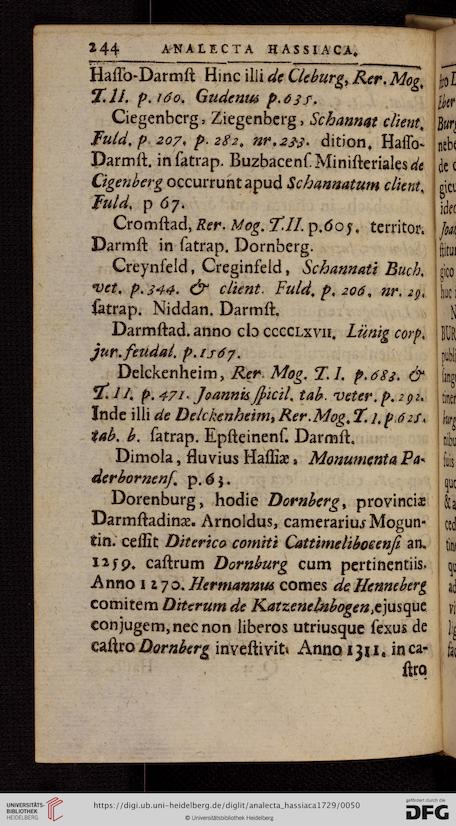 244 ANALECTA HASSIACA.
Hasso-Darmst Hinc illi de Cleburg, Rer. Mog.
T. II. p. 160. Gudenus p. 635.
Ciegenbcrg, Ziegenberg, Schannat client.
Fuld. p 207. p. 282. nr. 233. dition. Hasso-
Darmst. in satrap. Buzbacens. Ministeriales de
Cigenberg occurrunt apud Schannatum client.
Fuld. p 67.
Cromstad, Rer. Mog. T. II. p. 605. territor.
Darmst in satrap. Dornberg.
Creynfeld, Creginfeld, Schannati Buch.
vet. p. 344. & client. Fuld. p. 206. nr. 29.
satrap. Niddan. Darmst.
Darmstad. anno cIↄ ccccLXVII. Lünig corp.
jur. feudal. p. 1567.
Delckenheim, Rer. Mog. T. I. p. 683. &
T. II. p. 471. Joannis spicil. tab. veter. p. 292.
Inde illi de Delckenheim, Rer. Mog. T. I. p. 625.
tab. b. satrap. Epsteinens. Darmst.
Dimola, fluvius Hassiæ, Monumenta Pa-
derbornens. p. 63.
Dorenburg, hodie Dornberg, provinciæ
Darmstadinæ. Arnoldus, camerarius Mogun-
tin. cessit Diterico comiti Cattimelibocensi an.
1259. castrum Dornburg cum pertinentiis.
Anno 1270. Hermannus comes de Henneberg
comitem Diterum de Katzenelnbogen, ejusque
conjugem, nec non liberos utriusque sexus de
castro Dornberg investivit. Anno 1311. in ca-
stro
UNIVERSITÄTS-
BIBLIOTHEK
HEIDELBERG
https://digi.ub.uni-heidelberg.de/diglit/analecta_hassiaca1729/0050
© Universitätsbibliothek Heidelberg
gefördert durch die
DFG